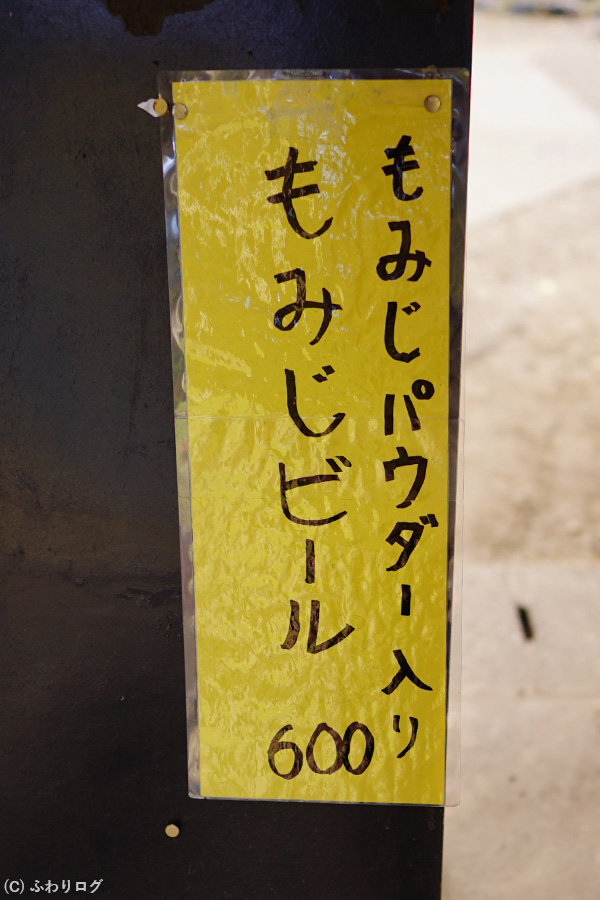 もみじパウダー入り
もみじビール 600
(C) ふわりログ